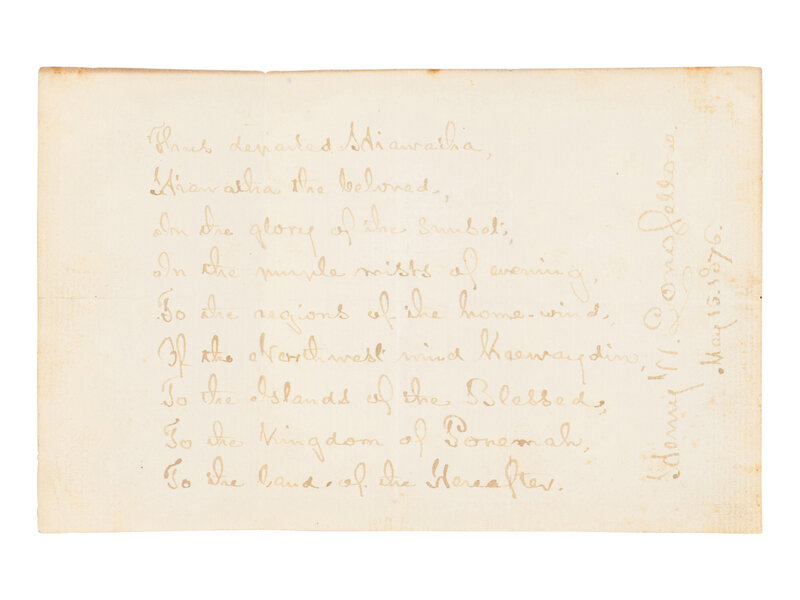 Thus departed Hiawatha,
Hiawatha the beloved,
In the glory of the sunset,
In the purple mists of evening,
To the regions of the home-wind,
Of the Northwest wind Keewaydin,
To the Islands of the Blessed,
To the Kingdom of Ponemah,
To the land of the Hereafter.
Henry W. Longfellow
May 15. 1876.